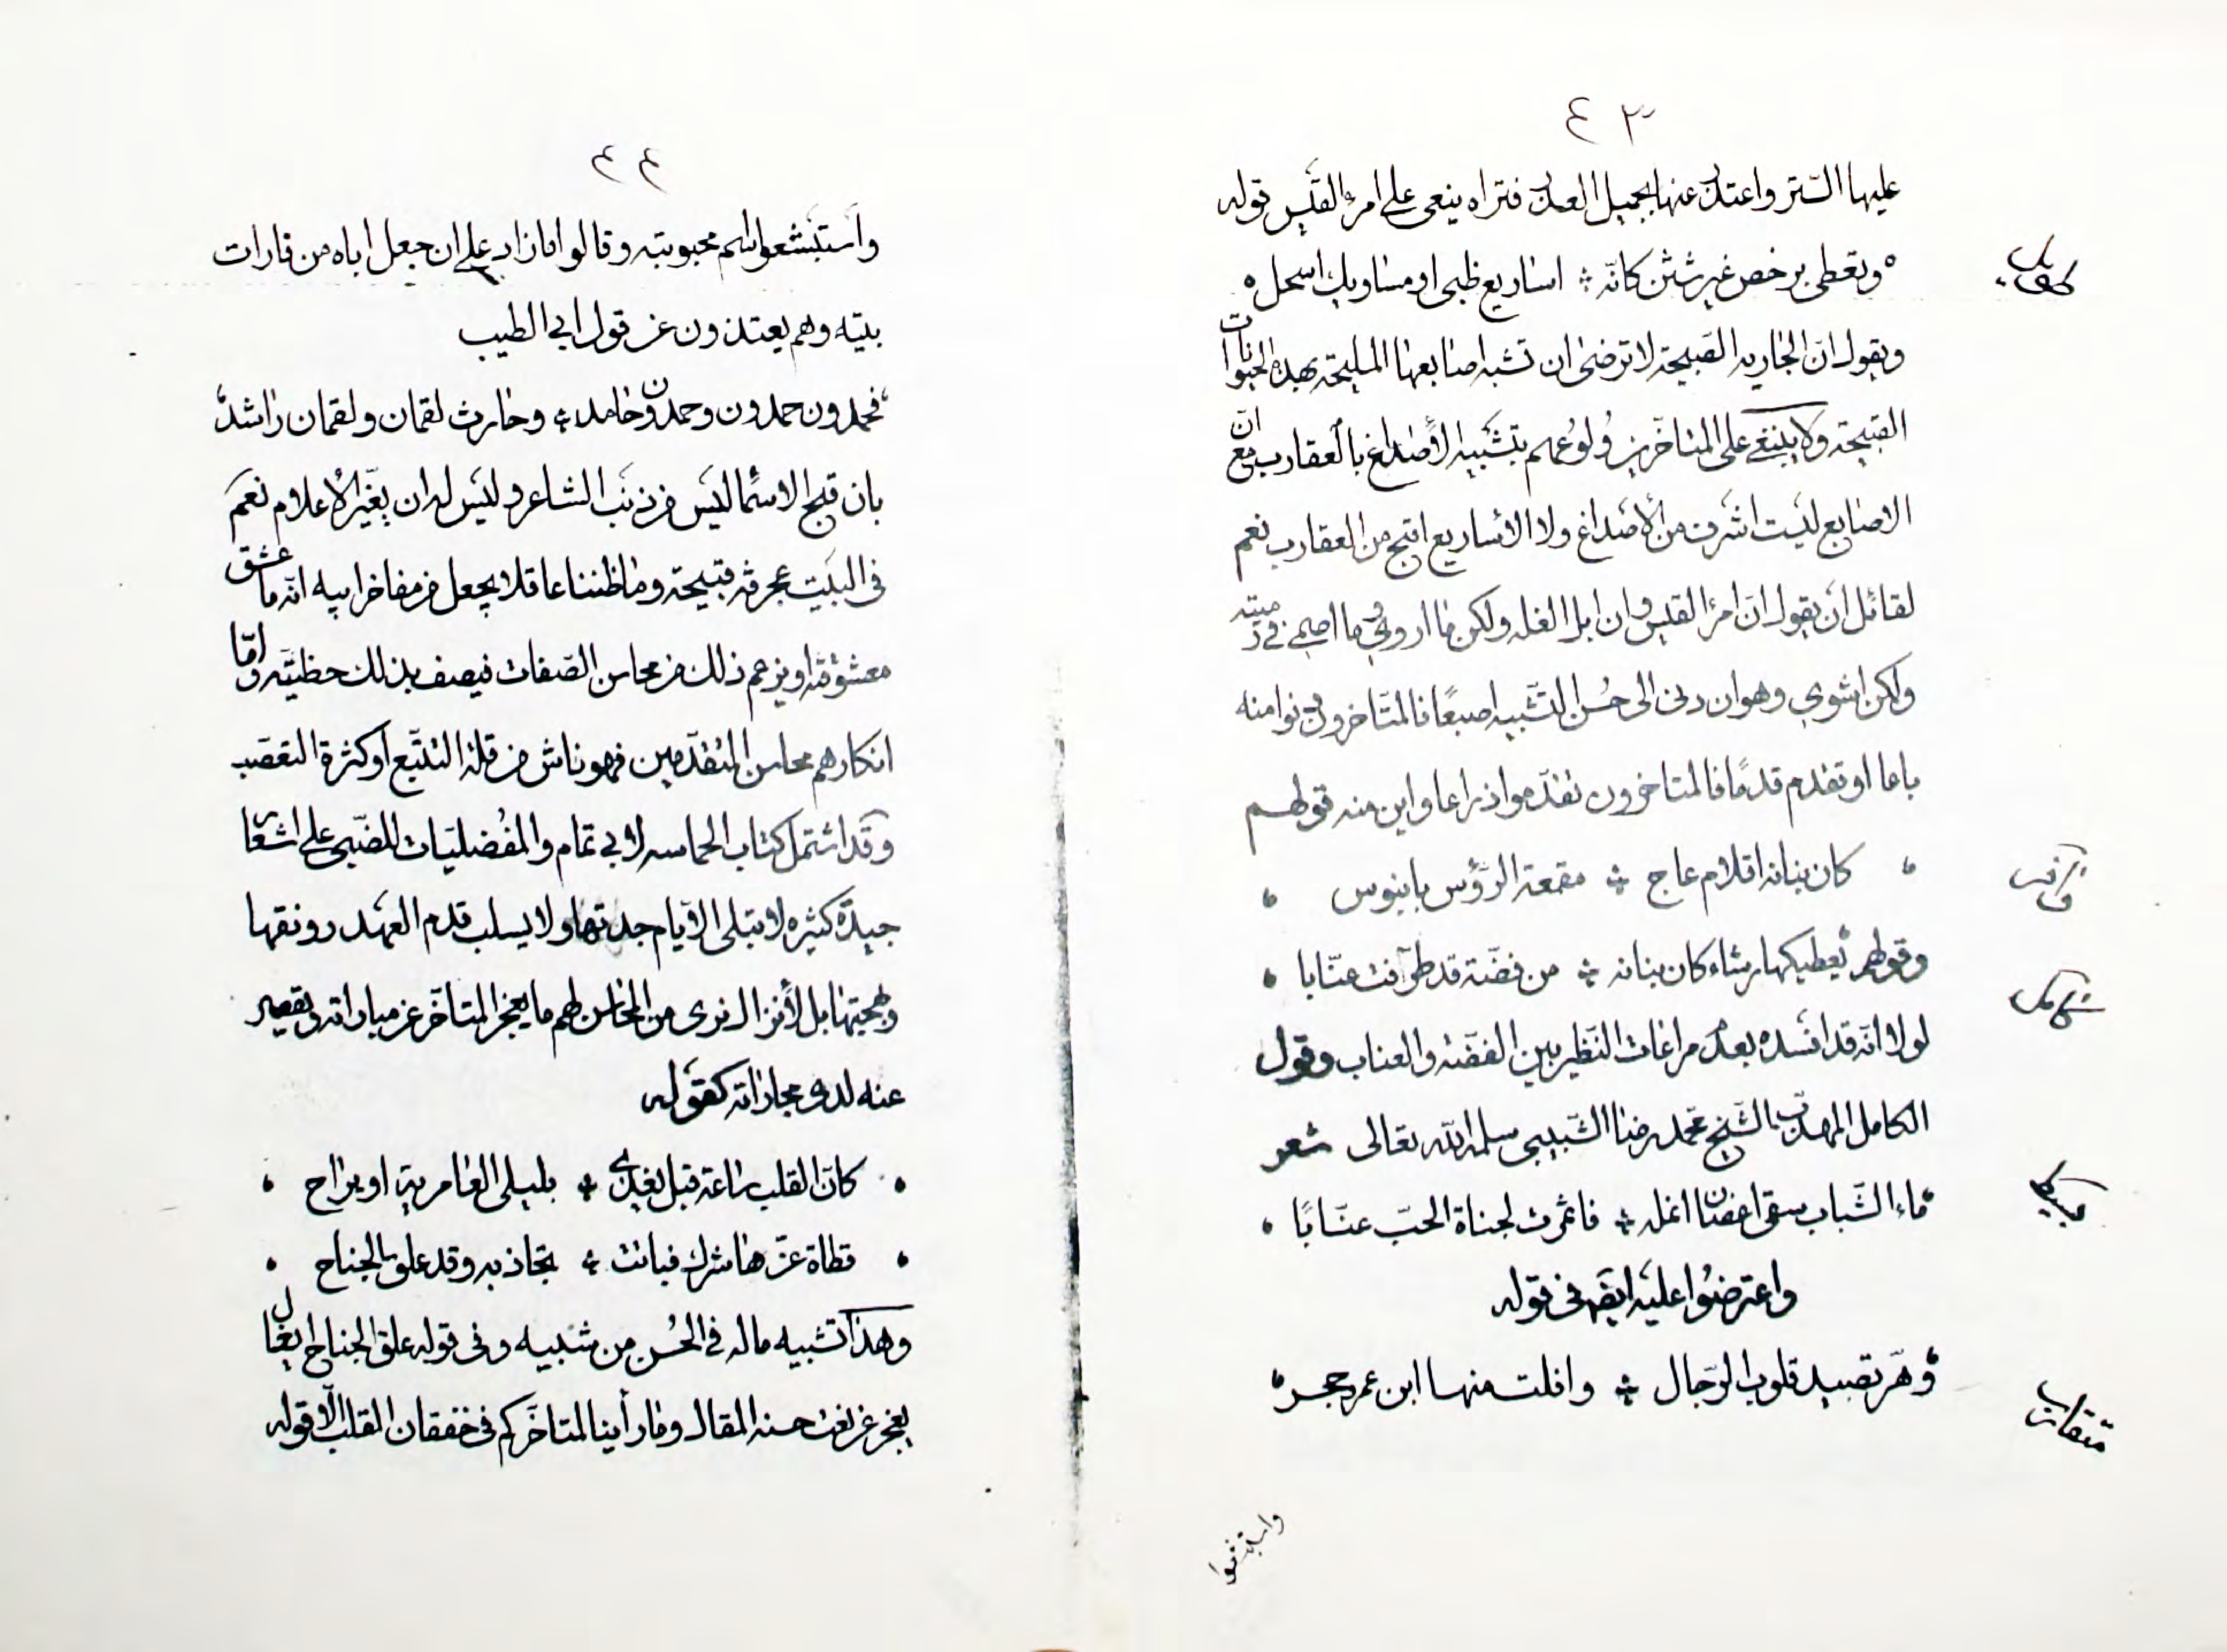 ٤٣
عليها الستر واعتذر عنها بجميل العذر فتراه ينعى على امرئ القيس قوله
وتعطى برخص غير شثن كانّه ؞ اساريع ظبى او مساويك اسحل
طويل
ويقول انّ الجارية الصّبيحة لا ترضى ان تشبه اصابعها المليحة بهذه الحيوانات
القبيحة ولا ينعى على المتاخّرين وُلُوعهم بتشبيه الأصداغ بالعقارب مع انّ
الاصابع ليست اشرف من الأصداغ ولا الأساريع اقبح من العقارب نعم
لقائل ان يقول انّ امرء القيس وان ابل الغلة ولكن ما اروى وما اصمى في رميته
ولكن اشوى وهو ان دنى الى حُسن التّشبيه اصبعًا فالمتاخرون دنوا منه
باعا او تقدم قدمًا فالمتاخرون تقدّموا ذراعا واين منه قولهم
كان بنانه اقلام عاج ؞ مقمعة الرّؤس بابنوس
وافر
وقولهم تعطيكها رشاء كان بنانه ؞ من فضّة قد طرّفت عنّابا
كامل
لولا انّه قد افسده بعدم مراعات النّظير بين الفضّة والعناب وقول
الكامل المهذب الشّيخ محمد رضا الشّبيبى سلمه الله تعالى شعر
ماء الشّباب سقى اغصان انمله ؞ فاثمرت لجناة الحبّ عنّابًا
بسيط
واعترضُوا عليه ايضًا فى قوله
وهرّ تصيد قلوب الرّجال ؞ وافلت منها ابن عمر وحجر
متقارب
واستبشعوا
٤٤
واستبشعوا اسم محبوبته وقالوا ما زاد على ان جعل اباه من فارات
بيته وهم يعتذرون عن قول ابي الطيب
فحمدون حمدون وحمدون حامد ؞ وحارث لقمان ولقمان راشد
بان قبح الاسْما ليس من ذنب الشاعر وليس له ان يغيّر الأعلام نعم
فى البيت عجرفة قبيحة وما ظننا عاقلا يجعل من مفاخر ابيه انّه ما عشق
معشوقته او يزعم ذلك من محاسن الصّفات فيصف بذلك حظيّته وامّا
انكارهم محاسن المتقدّمين فهو ناش من قلة التتبّع او كثرة التعصّب
وقد اشتمل كتاب الحماسه لابي تمّام والمُفضليّات للضّبى على اشعار
جيدّة كثيره لا تبلى الأيّام جدتها ولا يسلب قدم العهد رونقها
وبهجتها بل لا نزال نرى من المحاسن لهم ما يعجز المتاخّر عن مباراته ويقصر
عنه لدى مجاراته كقوله
كانّ القلب ساعة قبل يغدى ؞ بليلى العامرية او يراح
قطاة عزّها شرك فباتت ؞ تجاذبه وقد علق الجناح
وهذا تشبيه ماله في الحُسن من شبيه وفى قوله علق الجناح ايغال
يعجز عن نعت حسنه المقال وما رأينا لمتاخّركم فى خفقان القلب الّا قوله